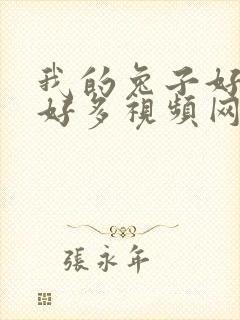 我的兔子好
好多視頻网
張永年